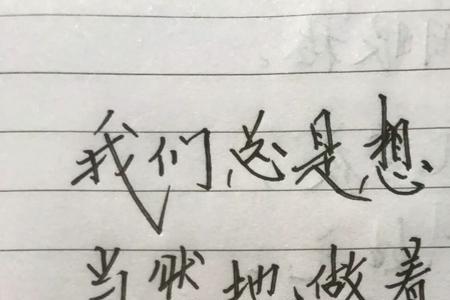 我们总是想
当然地做着